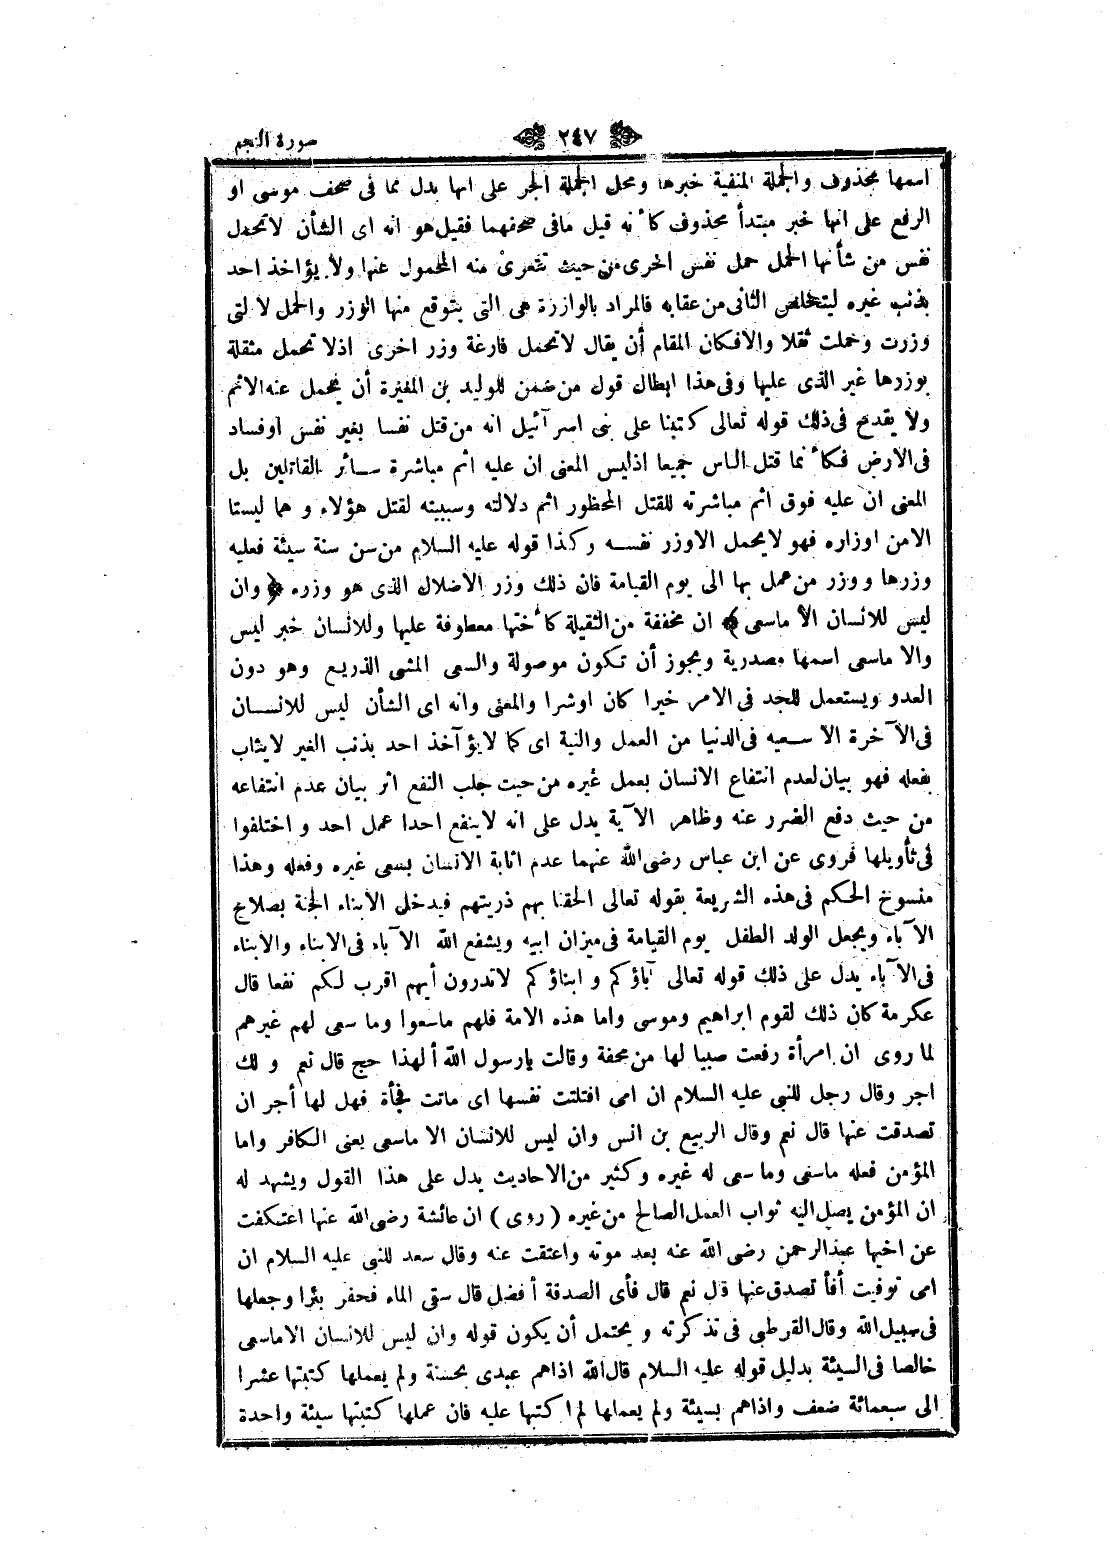 سورة النجم
٢٤٧
اسمها محذوف والجملة المنفية خبرها ومحل الجملة الجر على انها بدل مما فى صحف موسى او
الرفع على انها خبر مبتدأ محذوف كأنه قيل مافى صحفهما فقيل هو انه اى الشأن لاتحمل
نفس من شأنها الحمل حمل نفس اخرى من حيث تتعرى منه المحمول عنها ولا يؤاخذ احد
بذنب غيره ليتخلص الثانى من عقابه فالمراد بالوازرة هى التى يتوقع منها الوزر والحمل لا التى
وزرت وحملت ثقلا والافكان المقام أن يقال لاتحمل فارغة وزر اخرى اذلا تحمل مثقلة
بوزرها غير الذى عليها وفى هذا ابطال قول من ضمن للوليد بن المغيرة أن يحمل عنه الاثم
ولا يقدح فى ذلك قوله تعالى كتبنا على بنى اسرآئيل انه من قتل نفسا بغير نفس اوفساد
فى الارض فكأنما قتل الناس جميعا اذليس المعنى ان عليه اثم مباشرة سائر القاتلين بل
المعنى ان عليه فوق اثم مباشرته للقتل المحظور اثم دلالته وسببيته لقتل هؤلاء و هما ليستا
الامن اوزاره فهو لايحمل الاوزر نفسه وكذا قوله عليه السلام من سن سنة سيئة فعليه
وزرها ووزر من عمل بها الى يوم القيامة فان ذلك وزر الاضلال الذى هو وزره ﴿ وان
ليس للانسان الا ماسعى ﴾ ان مخففة من الثقيلة كأختها معطوفة عليها وللانسان خبر ليس
والا ماسعى اسمها مصدرية ويجوز أن تكون موصولة والسعى المشى الذريع وهو دون
العدو ويستعمل للجد فى الامر خيرا كان اوشرا والمعنى وانه اى الشأن ليس للانسان
فى الآخرة الا سعيه فى الدنيا من العمل والنية اى كما لايؤآخذ احد بذنب الغير لايثاب
بفعله فهو بيان لعدم انتفاع الانسان بعمل غيره من حيث جلب النفع اثر بيان عدم انتفاعه
من حيث دفع الضرر عنه وظاهر الآية يدل على انه لاينفع احدا عمل احد و اختلفوا
فى تأويلها فروى عن ابن عباس رضى الله عنهما عدم اثابة الانسان بسعى غيره وفعله وهذا
منسوخ الحكم فى هذه الشريعة بقوله تعالى الحقنا بهم ذريتهم فيدخل الابناء الجنة بصلاح
الآباء ويجعل الولد الطفل يوم القيامة فى ميزان ابيه ويشفع الله الآباء فى الابناء والابناء
فى الآباء يدل على ذلك قوله تعالى آباؤكم و ابناؤكم لاتدرون أيهم اقرب لكم نفعا قال
عكرمة كان ذلك لقوم ابراهيم وموسى واما هذه الامة فلهم ماسعوا وما سعى لهم غيرهم
لما روى ان امرأة رفعت صبيا لها من محفة وقالت يارسول الله ألهذا حج قال نعم و لك
اجر وقال رجل للنبى عليه السلام ان امى افتلتت نفسها اى ماتت فجأة فهل لها أجر ان
تصدقت عنها قال نعم وقال الربيع بن انس وان ليس للانسان الا ماسعى يعنى الكافر واما
المؤمن فعله ماسعى وما سعى له غيره وكثير من الاحاديث يدل على هذا القول ويشهد له
ان المؤمن يصل اليه ثواب العمل الصالح من غيره ( روى ) ان عائشة رضى الله عنها اعتكفت
عن اخيها عبدالرحمن رضى الله عنه بعد موته واعتقت عنه وقال سعد للنبى عليه السلام ان
امى توفيت أفأتصدق عنها قال نعم قال فأى الصدقة أفضل قال سقى الماء فحفر بئرا وجعلها
فى سبيل الله وقال القرطبى فى تذكرته و يحتمل أن يكون قوله وان ليس للانسان الاماسعى
خالصا فى السيئة بدليل قوله عليه السلام قال الله اذاهم عبدى بحسنة ولم يعملها كتبتها عشرا
الى سبعمائة ضعف واذاهم بسيئة ولم يعملها لم اكتبها عليه فان عملها كتبتها سيئة واحدة